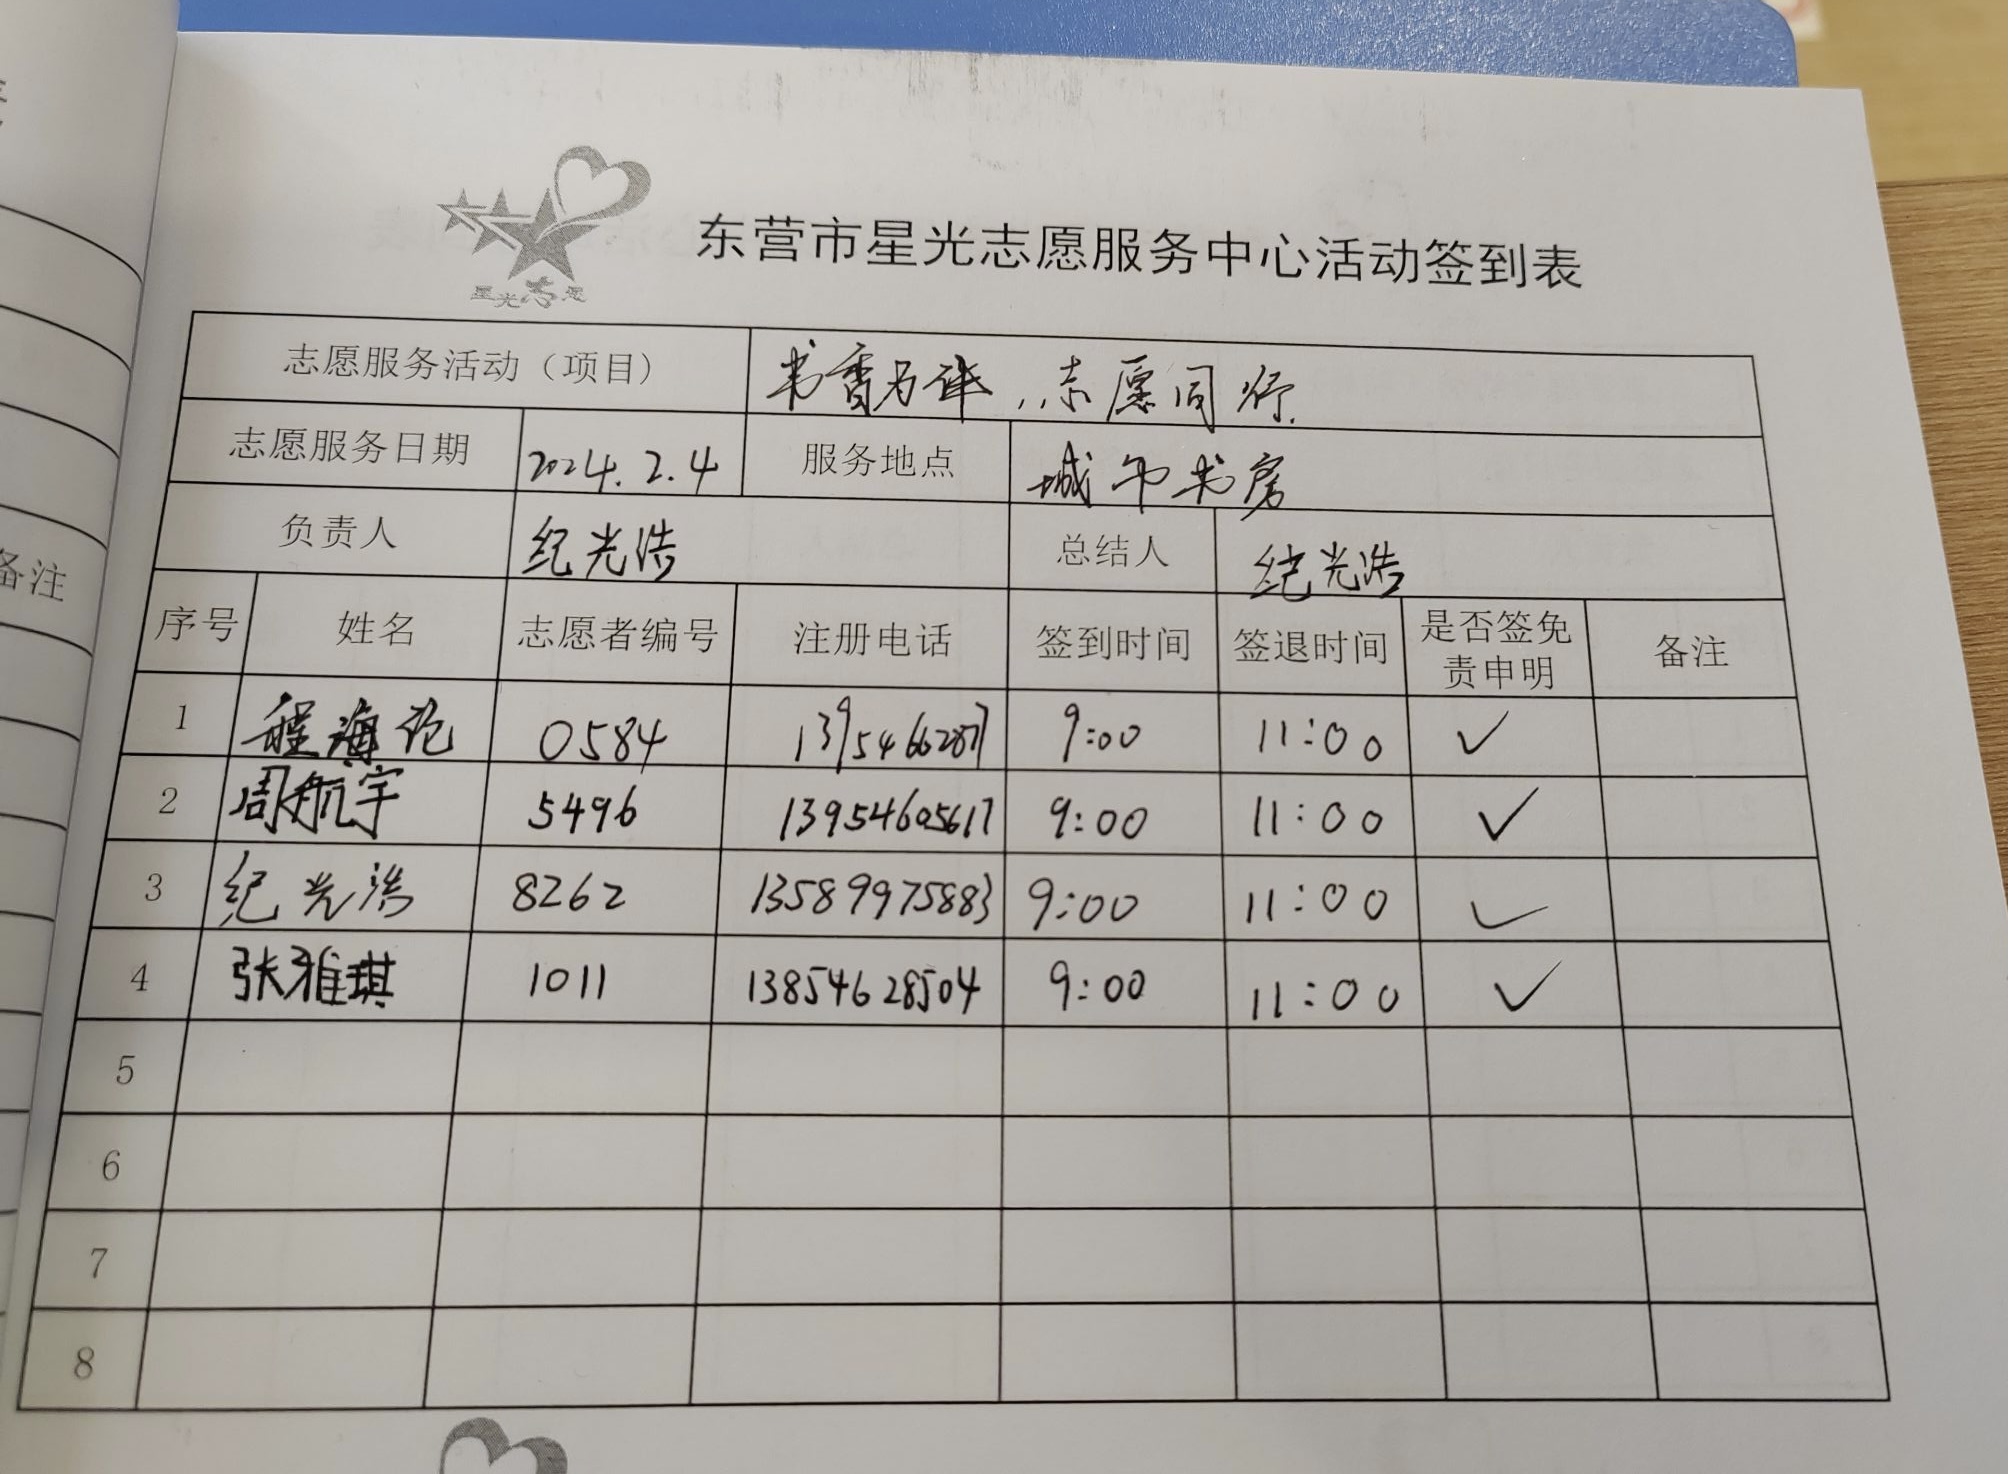 备注
星光志愿
东营市星光志愿服务中心活动签到表
志愿服务活动（项目） 书香为伴，志愿同行.
志愿服务日期 2024.2.4 服务地点 城市书房
负责人 纪光浩 总结人 纪光浩
序号 姓名 志愿者编号 注册电话 签到时间 签退时间 是否签免责申明 备注
1 程海 0584 9:00 11:00 ✓
2 周航宇 5496 13954605617 9:00 11:00 ✓
3 纪光浩 8262 13589975883 9:00 11:00 ✓
4 张雅琪 1011 13854628504 9:00 11:00 ✓
5
6
7
8